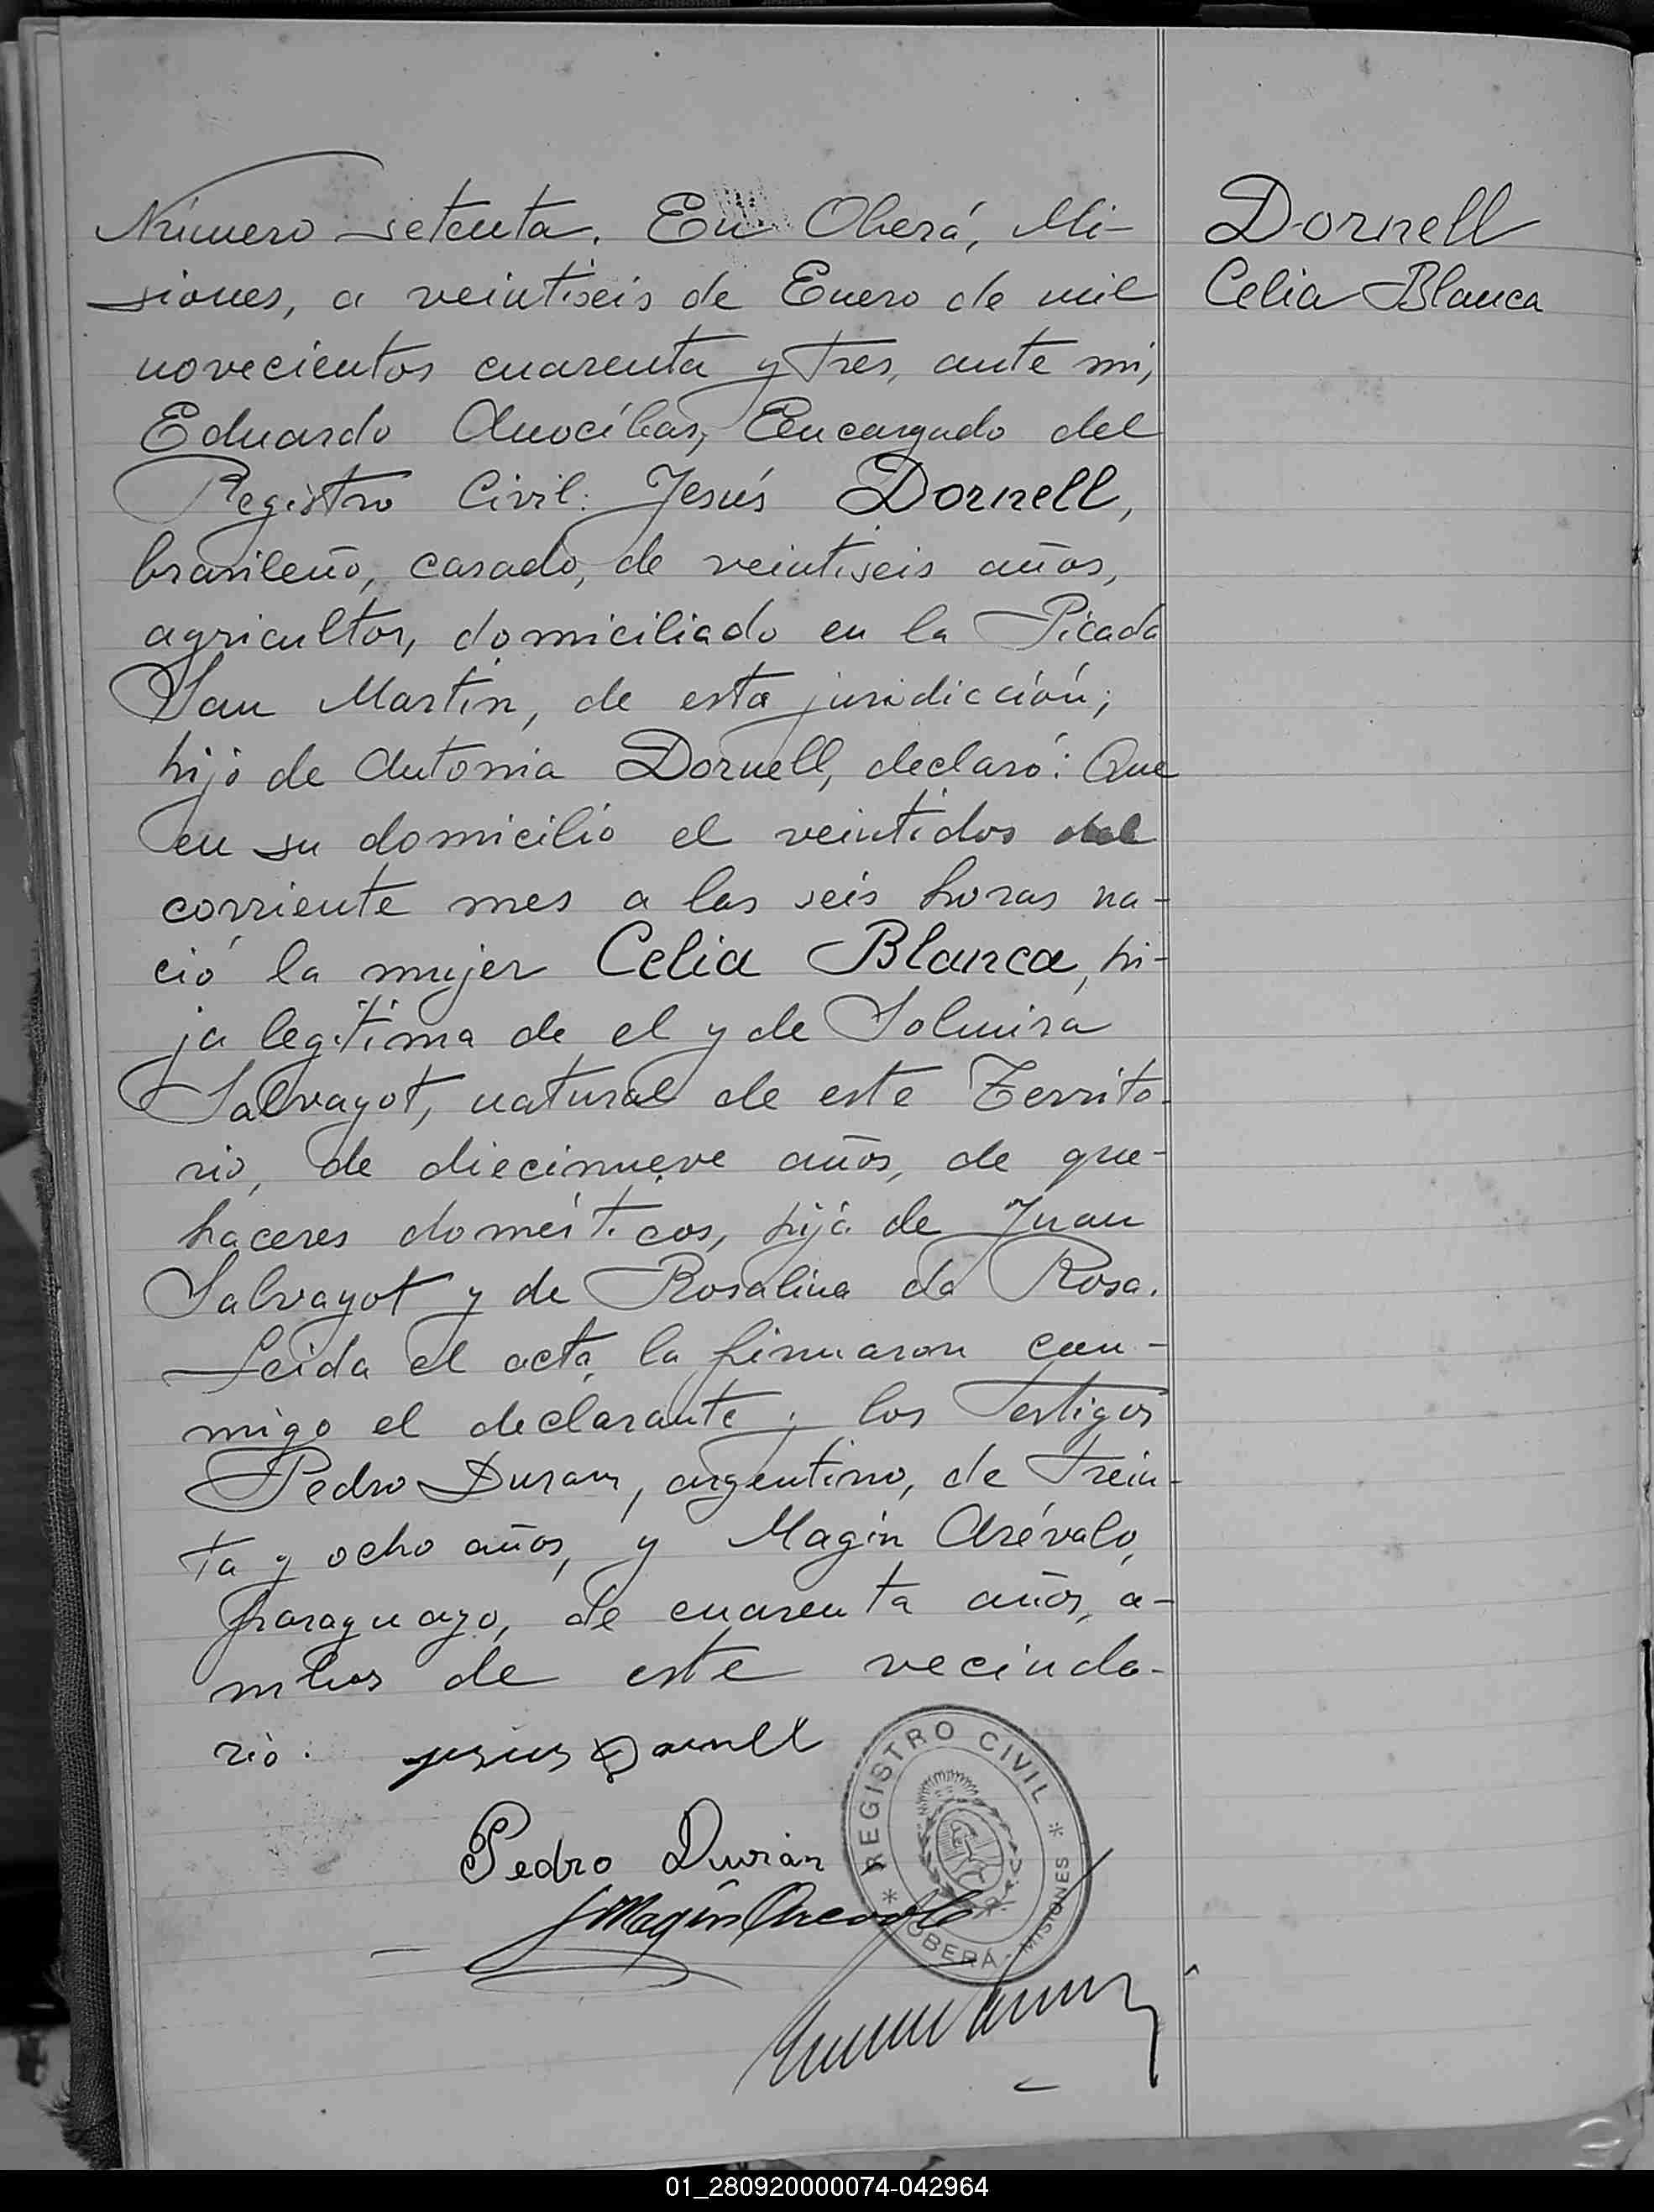 Número setenta. En Oberá, Mi-
siones, a veintiseis de Enero de mil
novecientos cuarenta y tres, ante mi,
Eduardo Anocíbar, Encargado del
Registro Civil: Jesús Dornell,
brasileño, casado, de veintiseis años,
agricultor, domiciliado en la Picada
San Martin, de esta juridicción;
hijo de Antonia Dornell, declaró: Que
en su domicilio el veintidos del
corriente mes a las seis horas na-
ció la mujer Celia Blanca, hi-
ja legitima de el y de Solmira
Salvagot, natural de este Territo-
rio, de diecinueve años, de que-
haceres domésticos, hija de Juan
Salvagot y de Rosalina da Rosa.
Leida el acta, la firmaron con-
migo el declarante y los testigos
Pedro Duran, argentino, de trein-
ta y ocho años, y Magin Arévalo,
paraguayo, de cuarenta años, a-
mbos de este vecinda-
rio.
Jesus Dornell
Pedro Durán
Magin Arevalo
REGISTRO CIVIL
OBERÁ - MISIONES
Dornell
Celia Blanca
01_280920000074-042964